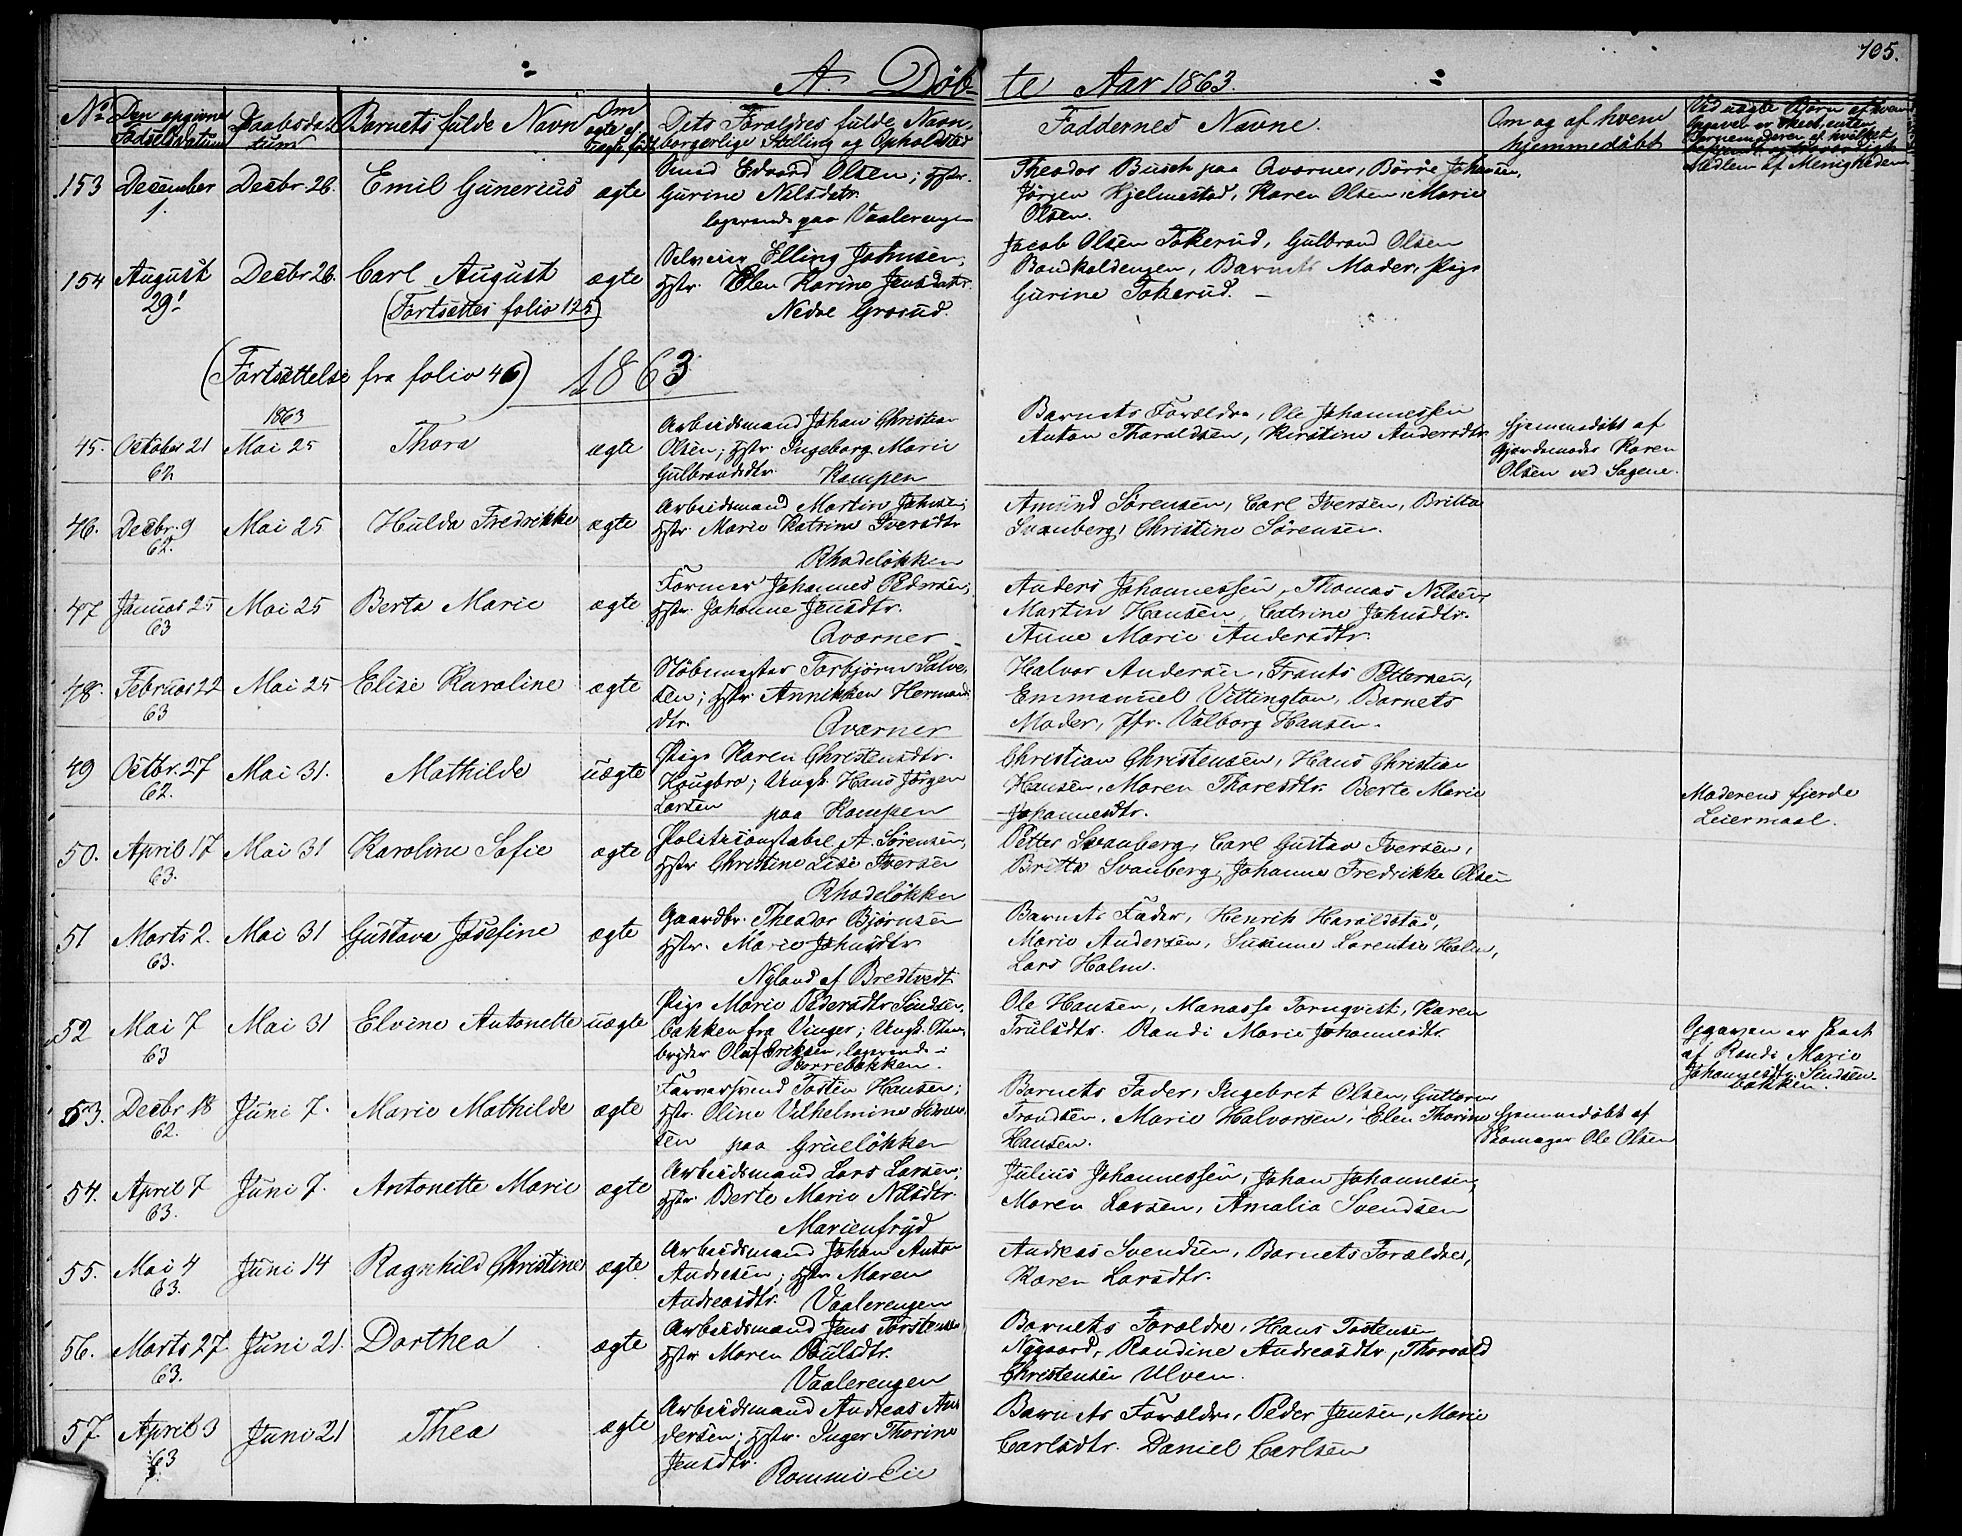 105.
A. Döb- te Aar 1863.
No Den opgivne Fødselsdatum Daabsdatum Barnets fulde Navn Om ægte el. uægte født Dets Forældres fulde Navn, borgerlige Stilling og Opholdsted Faddernes Navne. Om og af hvem hjemmedøbt
Medlem af Menigheden
153 December 1. Decbr 26. Emil Gunerius ægte
Smed Edvard Olsen; Hstr.
Gurine Nilsdtr.
logerende paa Vaalerengen
Theodor Busch paa Qværner, Børre Johansen,
Jørgen Hjelmestad, Karen Olsen, Marie
Olsen.
154 August 29! Decbr 26. Carl August ægte
(Fortsettes folio 125)
Selveier Elling Johnsen,
Hstr. Elen Karine Jensdatter.
Nedre Grorud.
Jacob Olsen Tokerud, Gulbrand Olsen
Barnets Moder, Pige
Gurine Tokerud. -
(Fortsættelse fra folio 46) 1863
1863
45. October 21 62 Mai 25 Thora ægte
Arbeidsmand Johan Christian
Olsen; Hstr. Ingeborg Marie
Gulbrandsdtr. Kampen
Barnets Forældre, Ole Johannessen
Anton Tharaldsen, Kirstine Andersdtr.
Hjemmedøbt af
Gjordemoder Karen
Olsen ved Sagene.
46. Decbr. 9 62. Mai 25 Hulda Fredrikke ægte
Arbeidsmand Martin Johnsen;
Hstr Marie Katrine Iversdtr
Rhodeløkken
Amund Sørensen, Carl Iversen, Britta
Svanberg, Christine Sørensen.
47 Januar 25 63 Mai 25 Berta Marie ægte
Former Johannes Pedersen;
Hstr. Johanne Jensdtr.
Qværner
Anders Johannessen, Thomas Nilsen,
Martin Hansen, Catrine Johnsdtr.
Anne Marie Andersdtr.
48. Februar 22 63 Mai 25 Elise Karoline ægte
Støbemester Torbjørn Salve-
sen; Hstr Annikken Hermands-
dtr. Qværner
Halvor Andersen, Frants Pettersen,
Emmanuel Vittington, Barnets
Moder, Jfr. Valborg Hansen.
49 Octbr. 27 62. Mai 31. Mathilde uægte
Pige Karen Christensdtr.
Haugbro; Ungk. Hans Jørgen
Larsen paa Kampen
Christian Christensen, Hans Christian
Hansen, Maren Tharesdtr. Berte Marie
Johannesdtr.
Moderens fjerde
Leiermaal.
50. April 17 63. Mai 31 Karoline Sofie ægte
Politiconstabel A. Sørensen,
Hstr Christine Lise Iversen
Rhodeløkken
Petter Svanberg, Carl Gustav Iversen,
Britta Svanberg, Johanne Fredrikke Olsen
51 Marts 2. 63. Mai 31 Gustava Josefine ægte
Gaardbr. Theodor Bjørnsen
Hstr. Marie Johnsdtr
Nyland af Bredtvedt
Barnets Fader, Henrik Haraldstad,
Marie Andersen, Susanne Lorentse Holm,
Lars Holm.
52 Mai 7 63 Mai 31 Elvine Antonette uægte
Pige Marie Pedersdtr Sindsen-
bakken fra Vinger; Ungk. Sten-
bryder Oluf Eriksen, logerende i
Torrebakken.
Ole Hansen, Manasse Tornqvist, Karen
Trulsdtr. Randi Marie Johannesdtr.
Opgaven er skeet
af Randi Marie
Johannesdtr. Sindsen-
bakken
53. Decbr 18 62. Juni 7. Marie Mathilde ægte
Farversvend Tosten Hansen;
Hstr. Oline Vilhelmine Simen-
sen paa Grüneløkken
Barnets Fader, Ingebret Olsen, Guttorm
Trondsen, Marie Halvorsen, Elen Thorine
Hansen.
Hjemmedøbt af
Skomager Ole Olsen
54. April 7 63. Juni 7. Antonette Marie ægte
Arbeidsmand Lars Larsen;
Hstr Berte Marie Nilsdtr.
Marienfryd
Julius Johannessen, Johan Johannesen,
Maren Larsen, Amalia Svendsen
55. Mai 4 63. Juni 14 Ragnhild Christine ægte
Arbeidsmand Johan Anton
Andresen; Hstr Maren
Andreasdtr. Vaalerengen
Andreas Svendsen, Barnets Forældre,
Karen Larsdtr.
56. Marts 27 63. Juni 21. Dorthea ægte
Arbeidsmand Jens Torstensen
Hstr Maren Poulsdtr.
Vaalerengen
Barnets Forældre, Hans Tostensen
Nygaard, Randine Andreasdtr, Thorvald
Christensen Ulven.
57 April 3 63 Juni 21 Thea ægte
Arbeidsmand Andreas An-
dersen; Hstr. Inger Thorine
Jensdtr. Rommi-Eie
Barnets Forældre, Peder Jensen, Marie
Carlsdtr. Daniel Carlsen